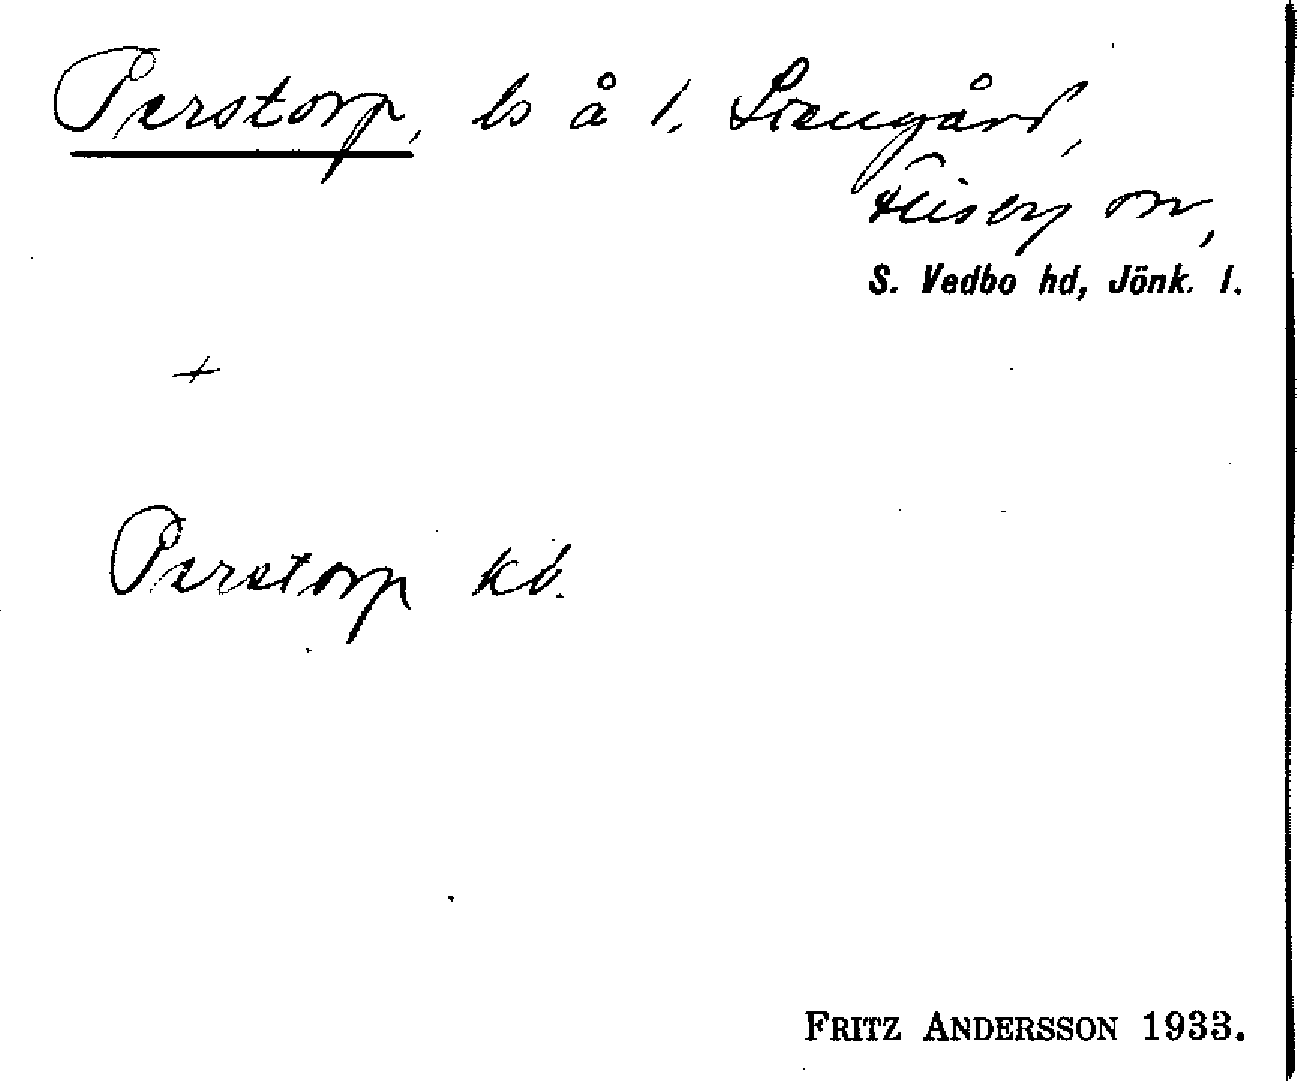 Perstorp, ls å 1. Lrengård,
Flisby sn,
S. Vedbo hd, Jönk. l.
+
Perstorp kb.
FRITZ ANDERSSON 1933.